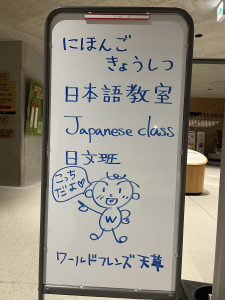 にほんご
きょうしつ
日本語教室
Japanese class
日文班
こっち
だよ♡
W
ワールドフレンズ天草